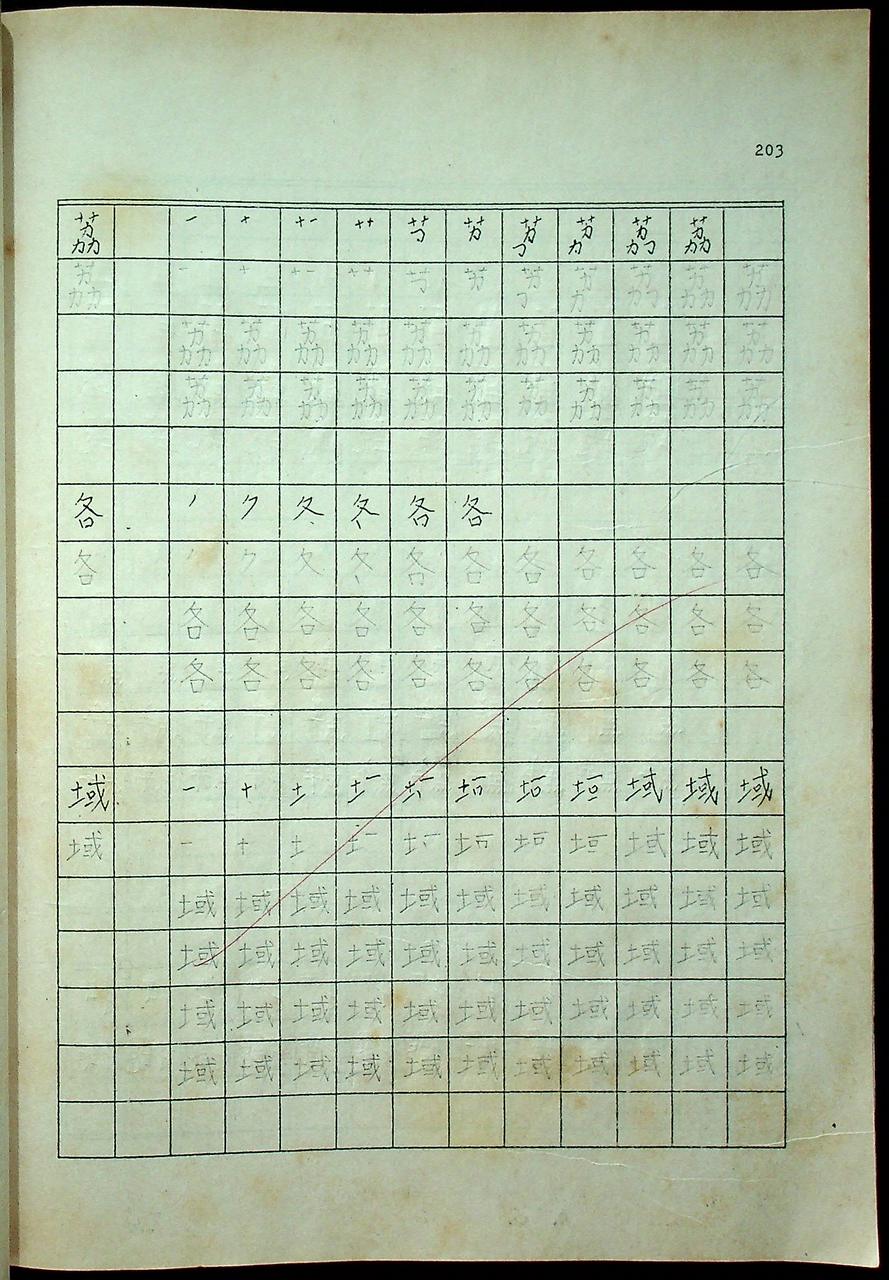 203
荔 一 十 十一 艹 艻 荔
荔 一 十 十一 艹 艻 荔 荔
荔 荔 荔 荔 荔 荔 荔 荔 荔 荔 荔
荔 荔 荔 荔 荔 荔 荔 荔 荔 荔 荔
各 丿 ク 夂 各 各
各 丿 ク 夂 各 各 各 各 各 各 各
各 各 各 各 各 各 各 各 各 各 各
各 各 各 各 各 各 各 各 各 各 各
域 一 十 土 域
域 一 十 土 域
域 域 域 域 域 域 域 域 域 域 域
域 域 域 域 域 域 域 域 域 域 域
域 域 域 域 域 域 域 域 域 域 域
域 域 域 域 域 域 域 域 域 域 域